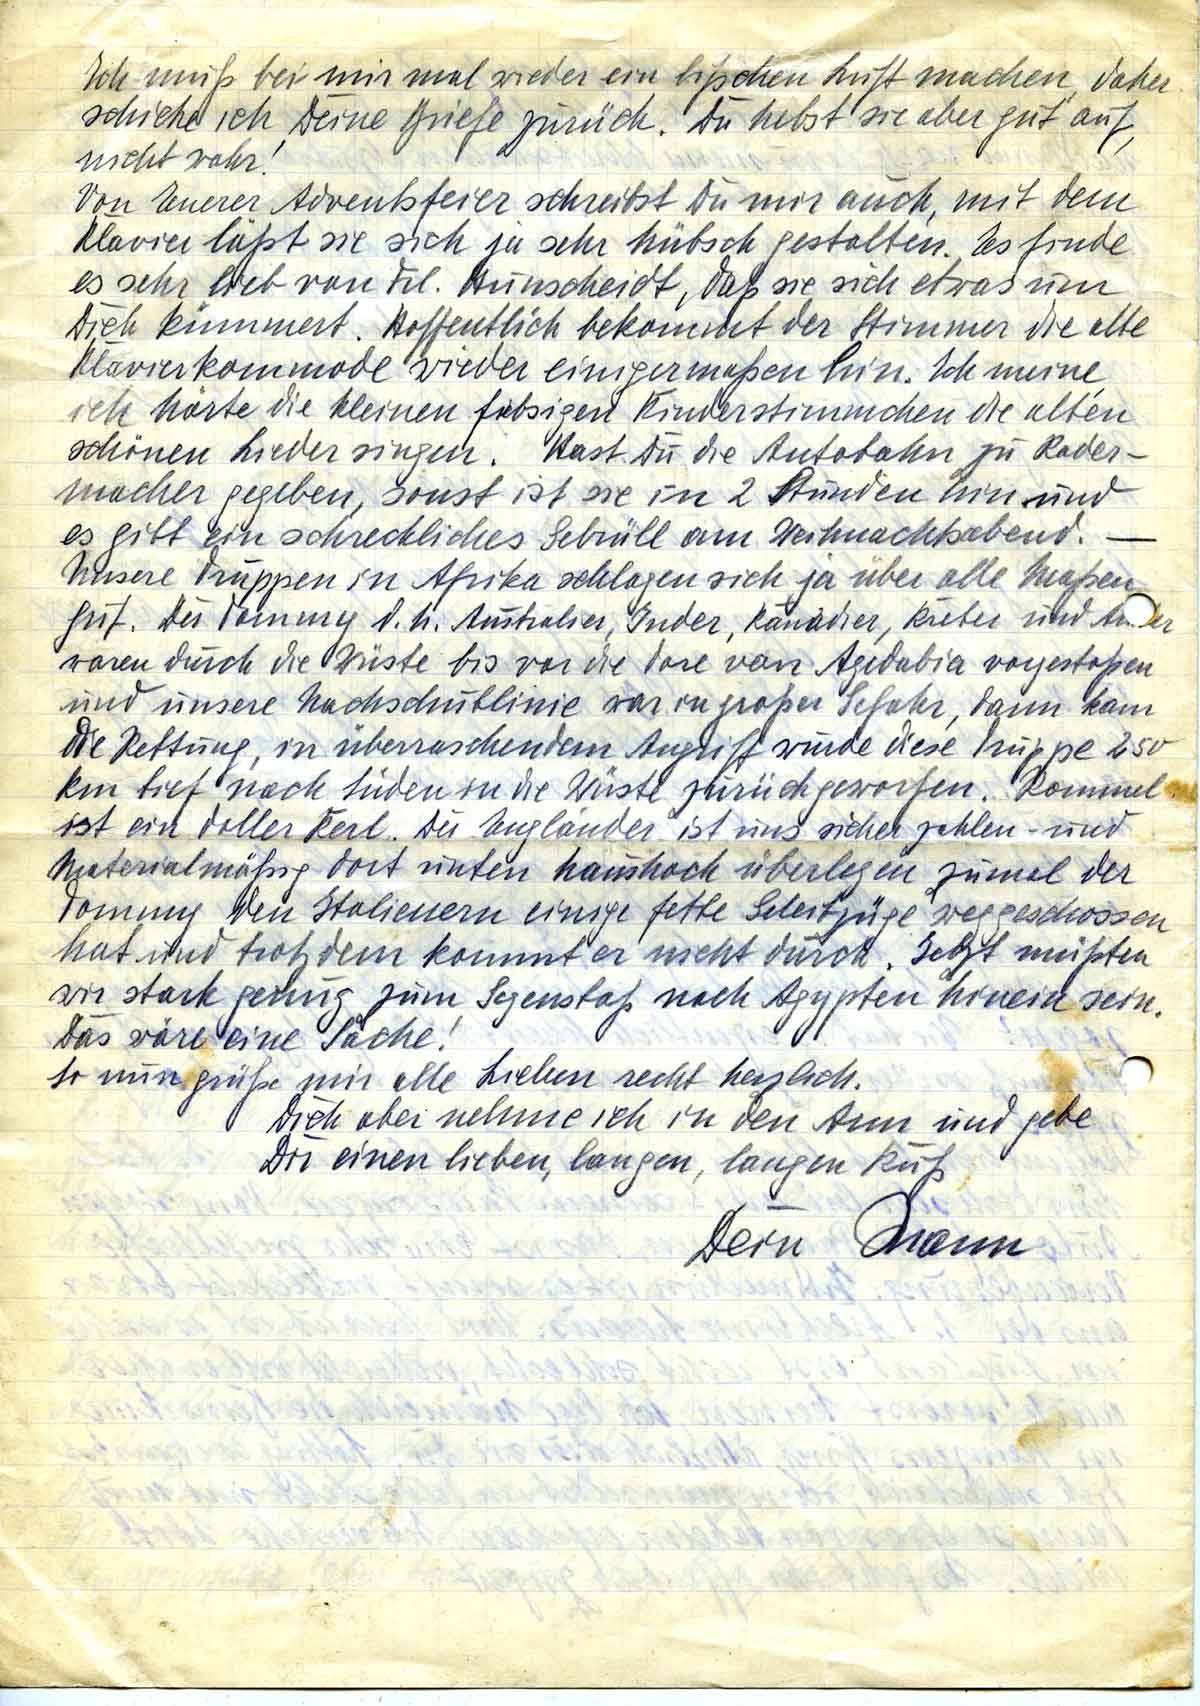 Ich muß bei mir mal wieder ein bißchen Luft machen, daher
schicke ich Deine Briefe zurück. Du hebst sie aber gut auf,
nicht wahr!
Von Euerer Adventsfeier schreibst Du mir auch, mit dem
Klavier läßt sie sich ja sehr hübsch gestalten. Es finde
es sehr lieb von Frl. Hunscheidt, daß sie sich etwas um
Dich kümmert. Hoffentlich bekommt der Stimmer die alte
Klavierkommode wieder einigermaßen hin. Ich meine
ich hörte die kleinen Kinderstimmchen die alten
schönen Lieder singen. Hast Du die Autobahn zu Rader-
macher gegeben, sonst ist sie in 2 Stunden hin und
es gibt ein schreckliches Gebrüll am Weihnachtsabend. —
Unsere Truppen in Afrika schlagen sich ja über alle Maßen
gut. Der Tommy d.h. Australier, Inder, Kanadier, und
waren durch die Wüste bis vor die Tore von Agedabia vorgestoßen
und unsere Nachschublinie war in großer Gefahr, dann kam
die Rettung, in überraschendem Angriff wurde diese Truppe 250
km tief nach Süden in die Wüste zurückgeworfen. Rommel
ist ein doller Kerl. Der Engländer ist uns sicher zahlen- und
Materialmäßig dort unten haushoch überlegen zumal der
Tommy den Italienern einige fette Geleitzüge weggeschossen
hat und trotzdem kommt er nicht durch. Jetzt müßten
wir stark genug zum Gegenstoß nach Ägypten hinein sein.
Das wäre eine Sache!
So nun grüße mir alle Lieben recht herzlich.
Dich aber nehme ich in den Arm und gebe
Dir einen lieben, langen, langen Kuß
Dein Mann